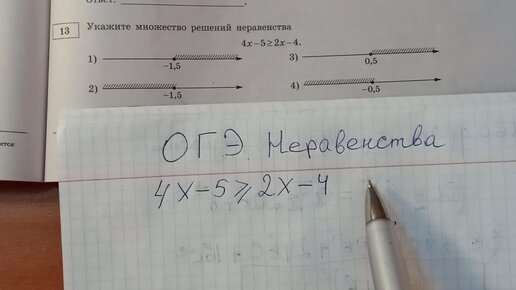 Ответ:
13 Укажите множество решений неравенства
4x−5≥2x−4.
1) −1,5
3) 0,5
2) −1,5
4) −0,5
ОГЭ. Неравенства
4x−5⩾2x−4